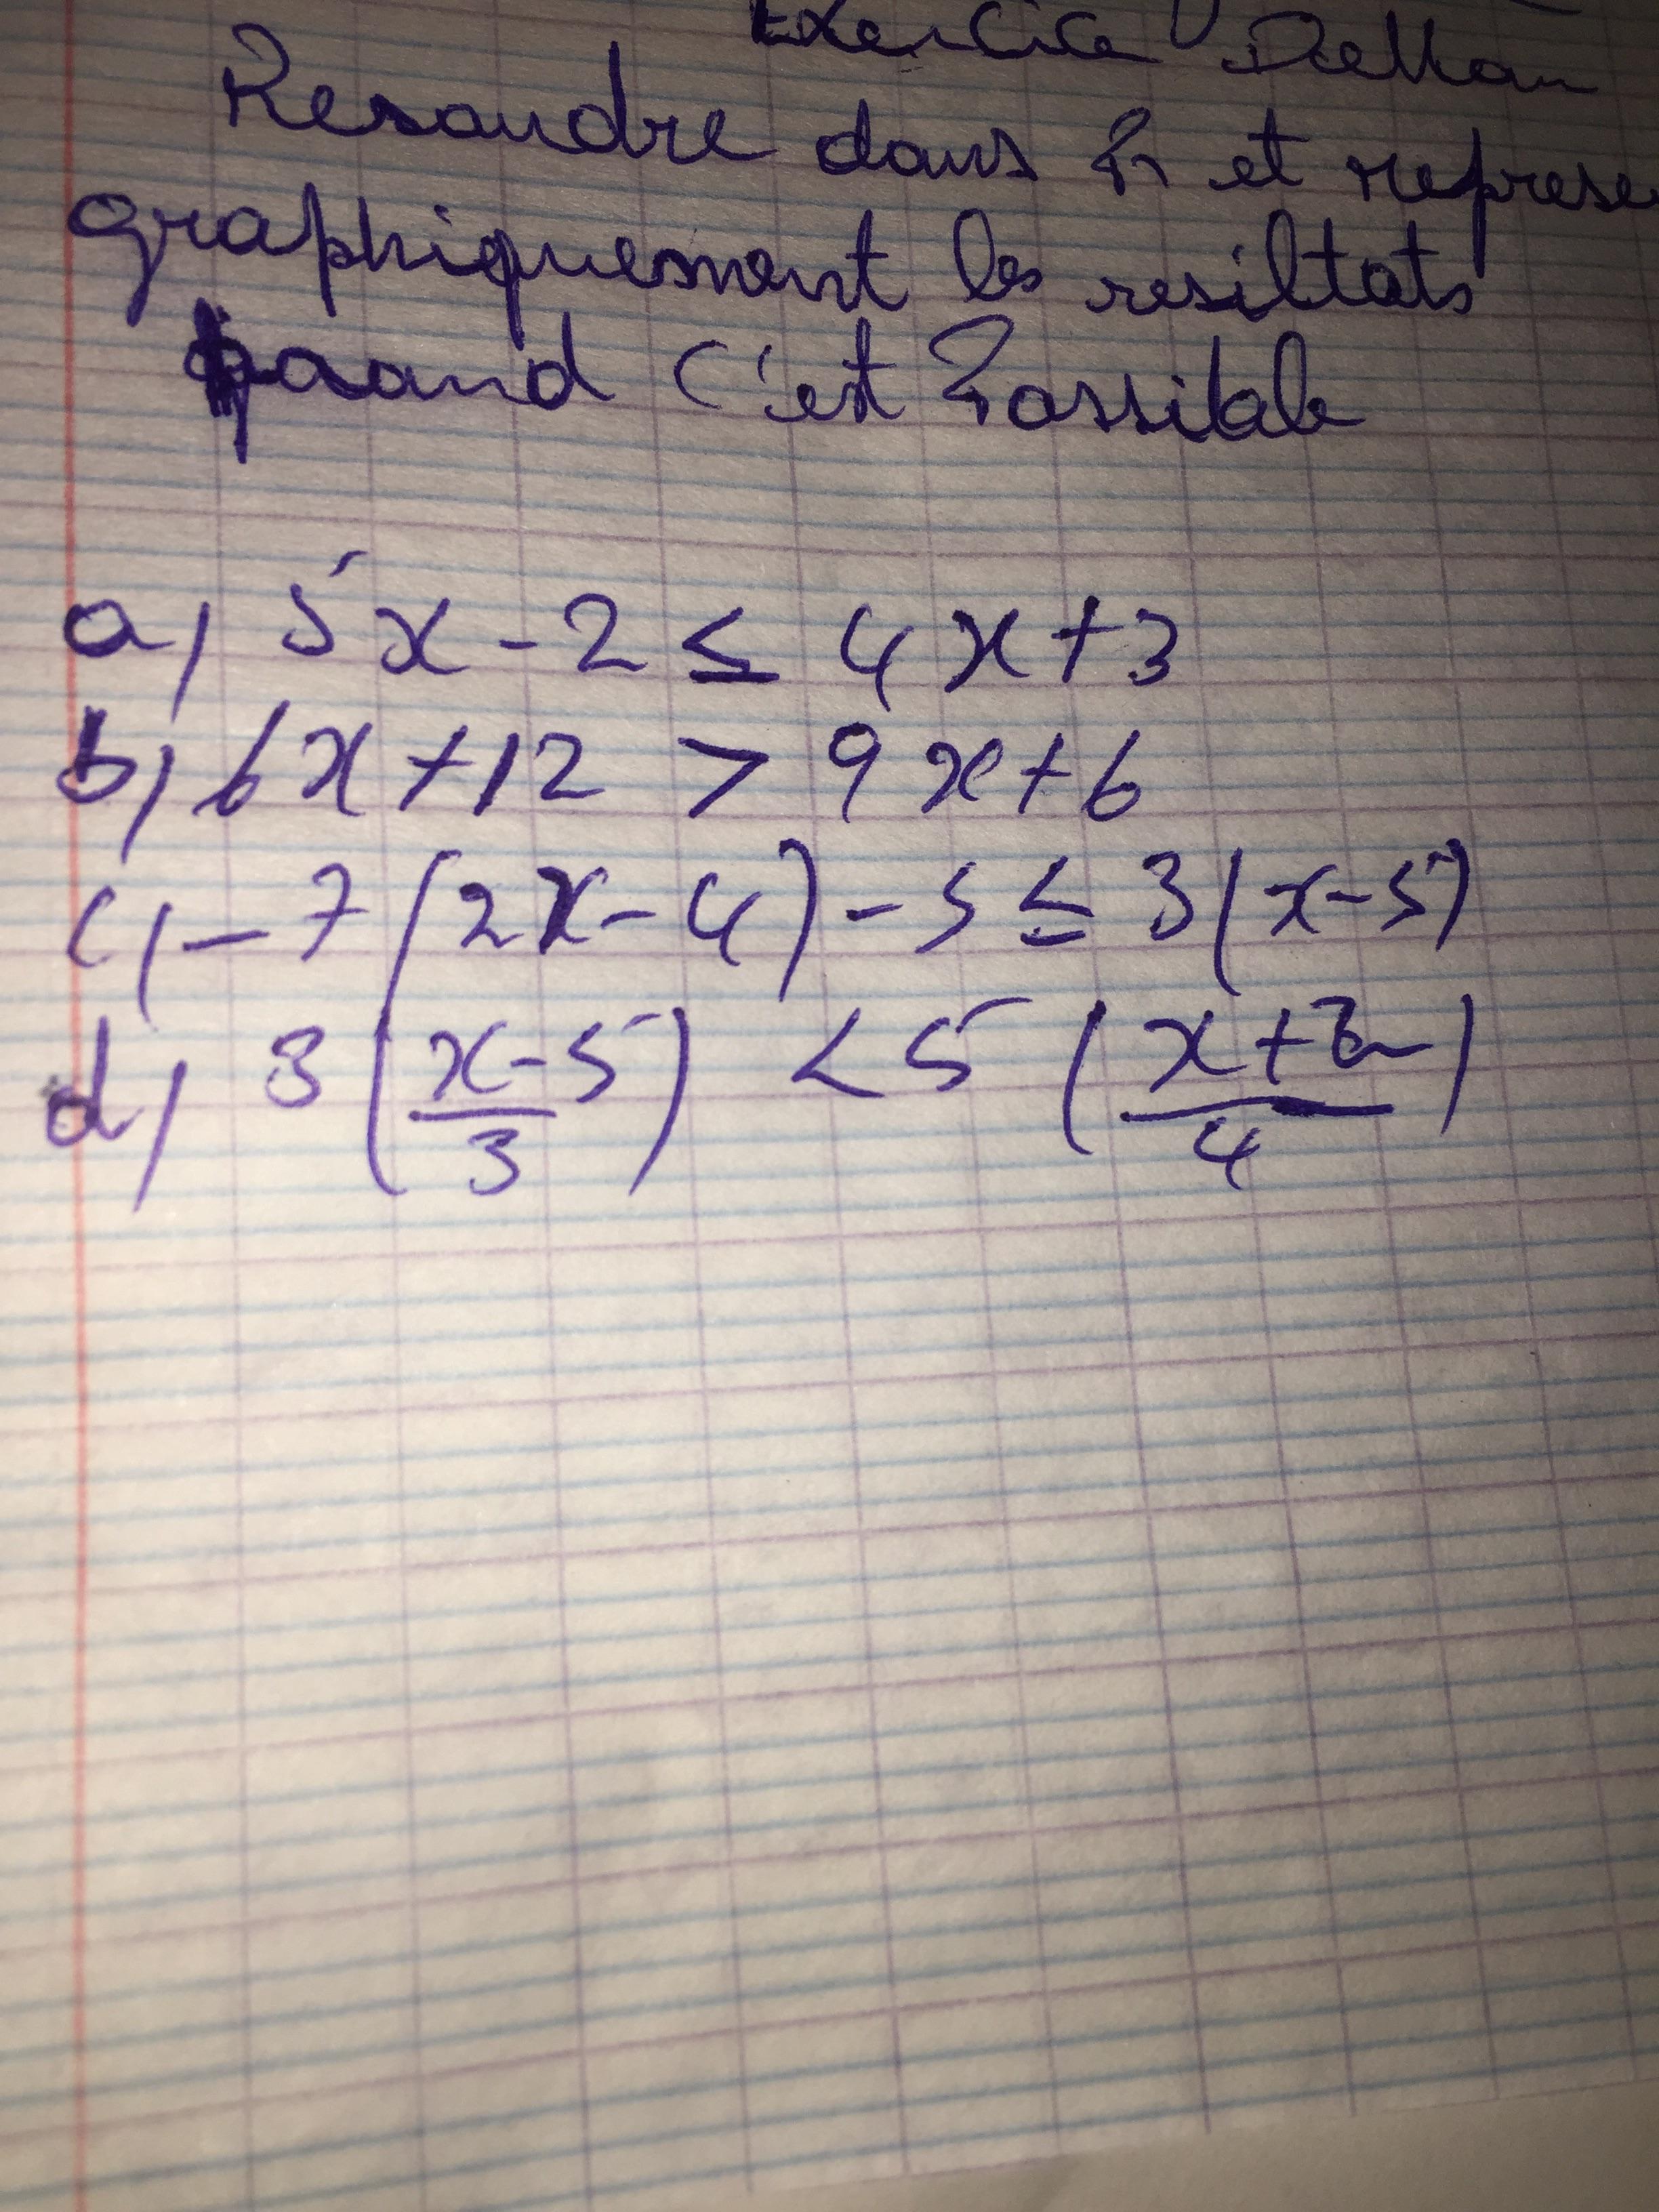 Exercice
Resoudre dans R et represe
graphiquement les resiltats
quand c'est Possible
a) 5x - 2 ≤ 4x + 3
b) 6x + 12 > 9x + 6
c) - 7 (2x - 4) - 5 ≤ 3 (x - 5)
d) 3 (x - 5 / 3) < 5 (x + 2 / 4)